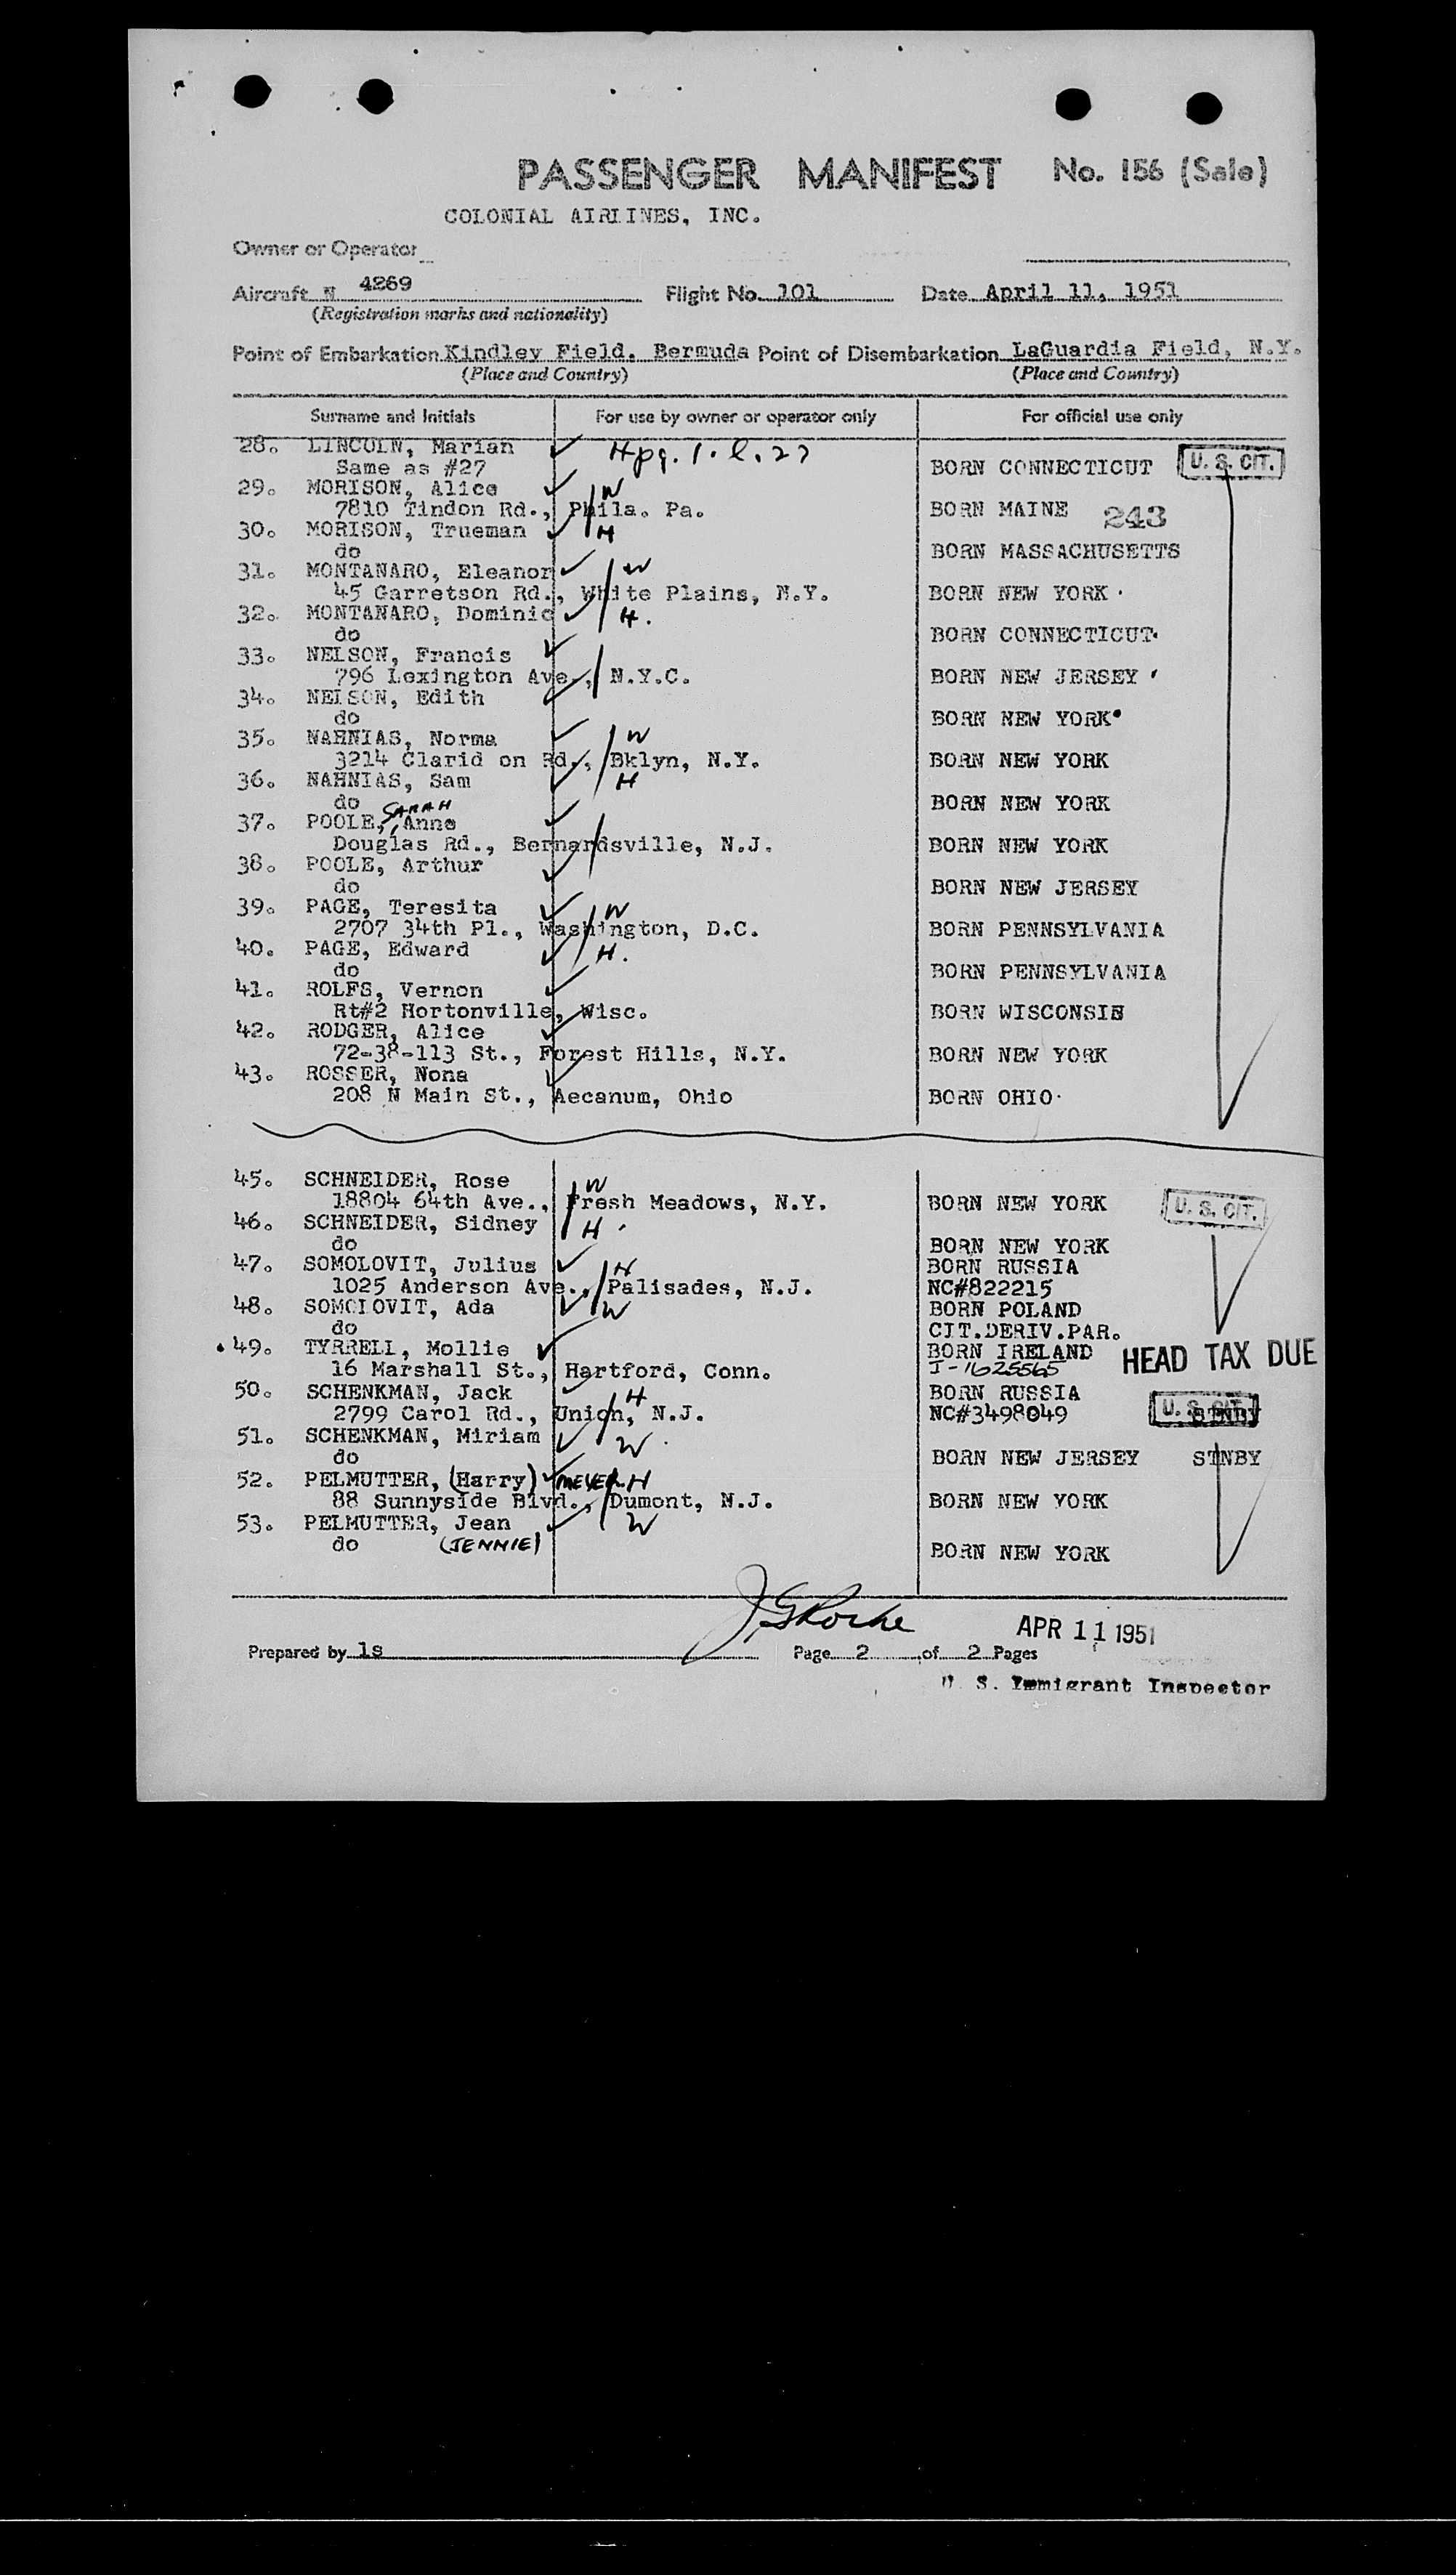 PASSENGER MANIFEST No. 156 (Sale)
COLONIAL AIRLINES, INC.
Owner or Operator
Aircraft N 4269 Flight No. 101 Date April 11, 1951
(Registration marks and nationality)
Point of Embarkation Kindley Field, Bermuda Point of Disembarkation LaGuardia Field, N.Y.
(Place and Country) (Place and Country)
Surname and Initials For use by owner or operator only For official use only
28. LINCOLN, Marian H pg. 1. l. 27
Same as #27 BORN CONNECTICUT U. S. CIT.
29. MORISON, Alice W
7810 Tindon Rd., Phila. Pa. BORN MAINE 243
30. MORISON, Trueman H
do BORN MASSACHUSETTS
31. MONTANARO, Eleanor W
45 Garretson Rd., White Plains, N.Y. BORN NEW YORK
32. MONTANARO, Dominic H.
do BORN CONNECTICUT
33. NELSON, Francis
796 Lexington Ave., N.Y.C. BORN NEW JERSEY
34. NELSON, Edith
do BORN NEW YORK
35. NAHNIAS, Norma W
3214 Clarid on Rd., Bklyn, N.Y. BORN NEW YORK
36. NAHNIAS, Sam H
do BORN NEW YORK
SARAH
37. POOLE, Anne
Douglas Rd., Bernardsville, N.J. BORN NEW YORK
38. POOLE, Arthur
do BORN NEW JERSEY
39. PAGE, Teresita W
2707 34th Pl., Washington, D.C. BORN PENNSYLVANIA
40. PAGE, Edward H.
do BORN PENNSYLVANIA
41. ROLFS, Vernon
Rt#2 Hortonville, Wisc. BORN WISCONSIN
42. RODGER, Alice
72-38-113 St., Forest Hills, N.Y. BORN NEW YORK
43. ROSSER, Nona
208 N Main St., Aecanum, Ohio BORN OHIO
45. SCHNEIDER, Rose W
18804 64th Ave., Fresh Meadows, N.Y. BORN NEW YORK U. S. CIT.
46. SCHNEIDER, Sidney H
do BORN NEW YORK
47. SOMOLOVIT, Julius H BORN RUSSIA
1025 Anderson Ave., Palisades, N.J. NC#822215
48. SOMOLOVIT, Ada W BORN POLAND
do CIT.DERIV.PAR.
49. TYRRELL, Mollie BORN IRELAND HEAD TAX DUE
16 Marshall St., Hartford, Conn. I-1625565
50. SCHENKMAN, Jack H BORN RUSSIA
2799 Carol Rd., Union, N.J. NC#3498049 U. S. CIT. STNBY
51. SCHENKMAN, Miriam W
do BORN NEW JERSEY STNBY
52. PELMUTTER, (Harry) MEYER H
88 Sunnyside Blvd., Dumont, N.J. BORN NEW YORK
53. PELMUTTER, Jean W
do (JENNIE) BORN NEW YORK
APR 11 1951
Prepared by ls Page 2 of 2 Pages
U. S. Immigrant Inspector